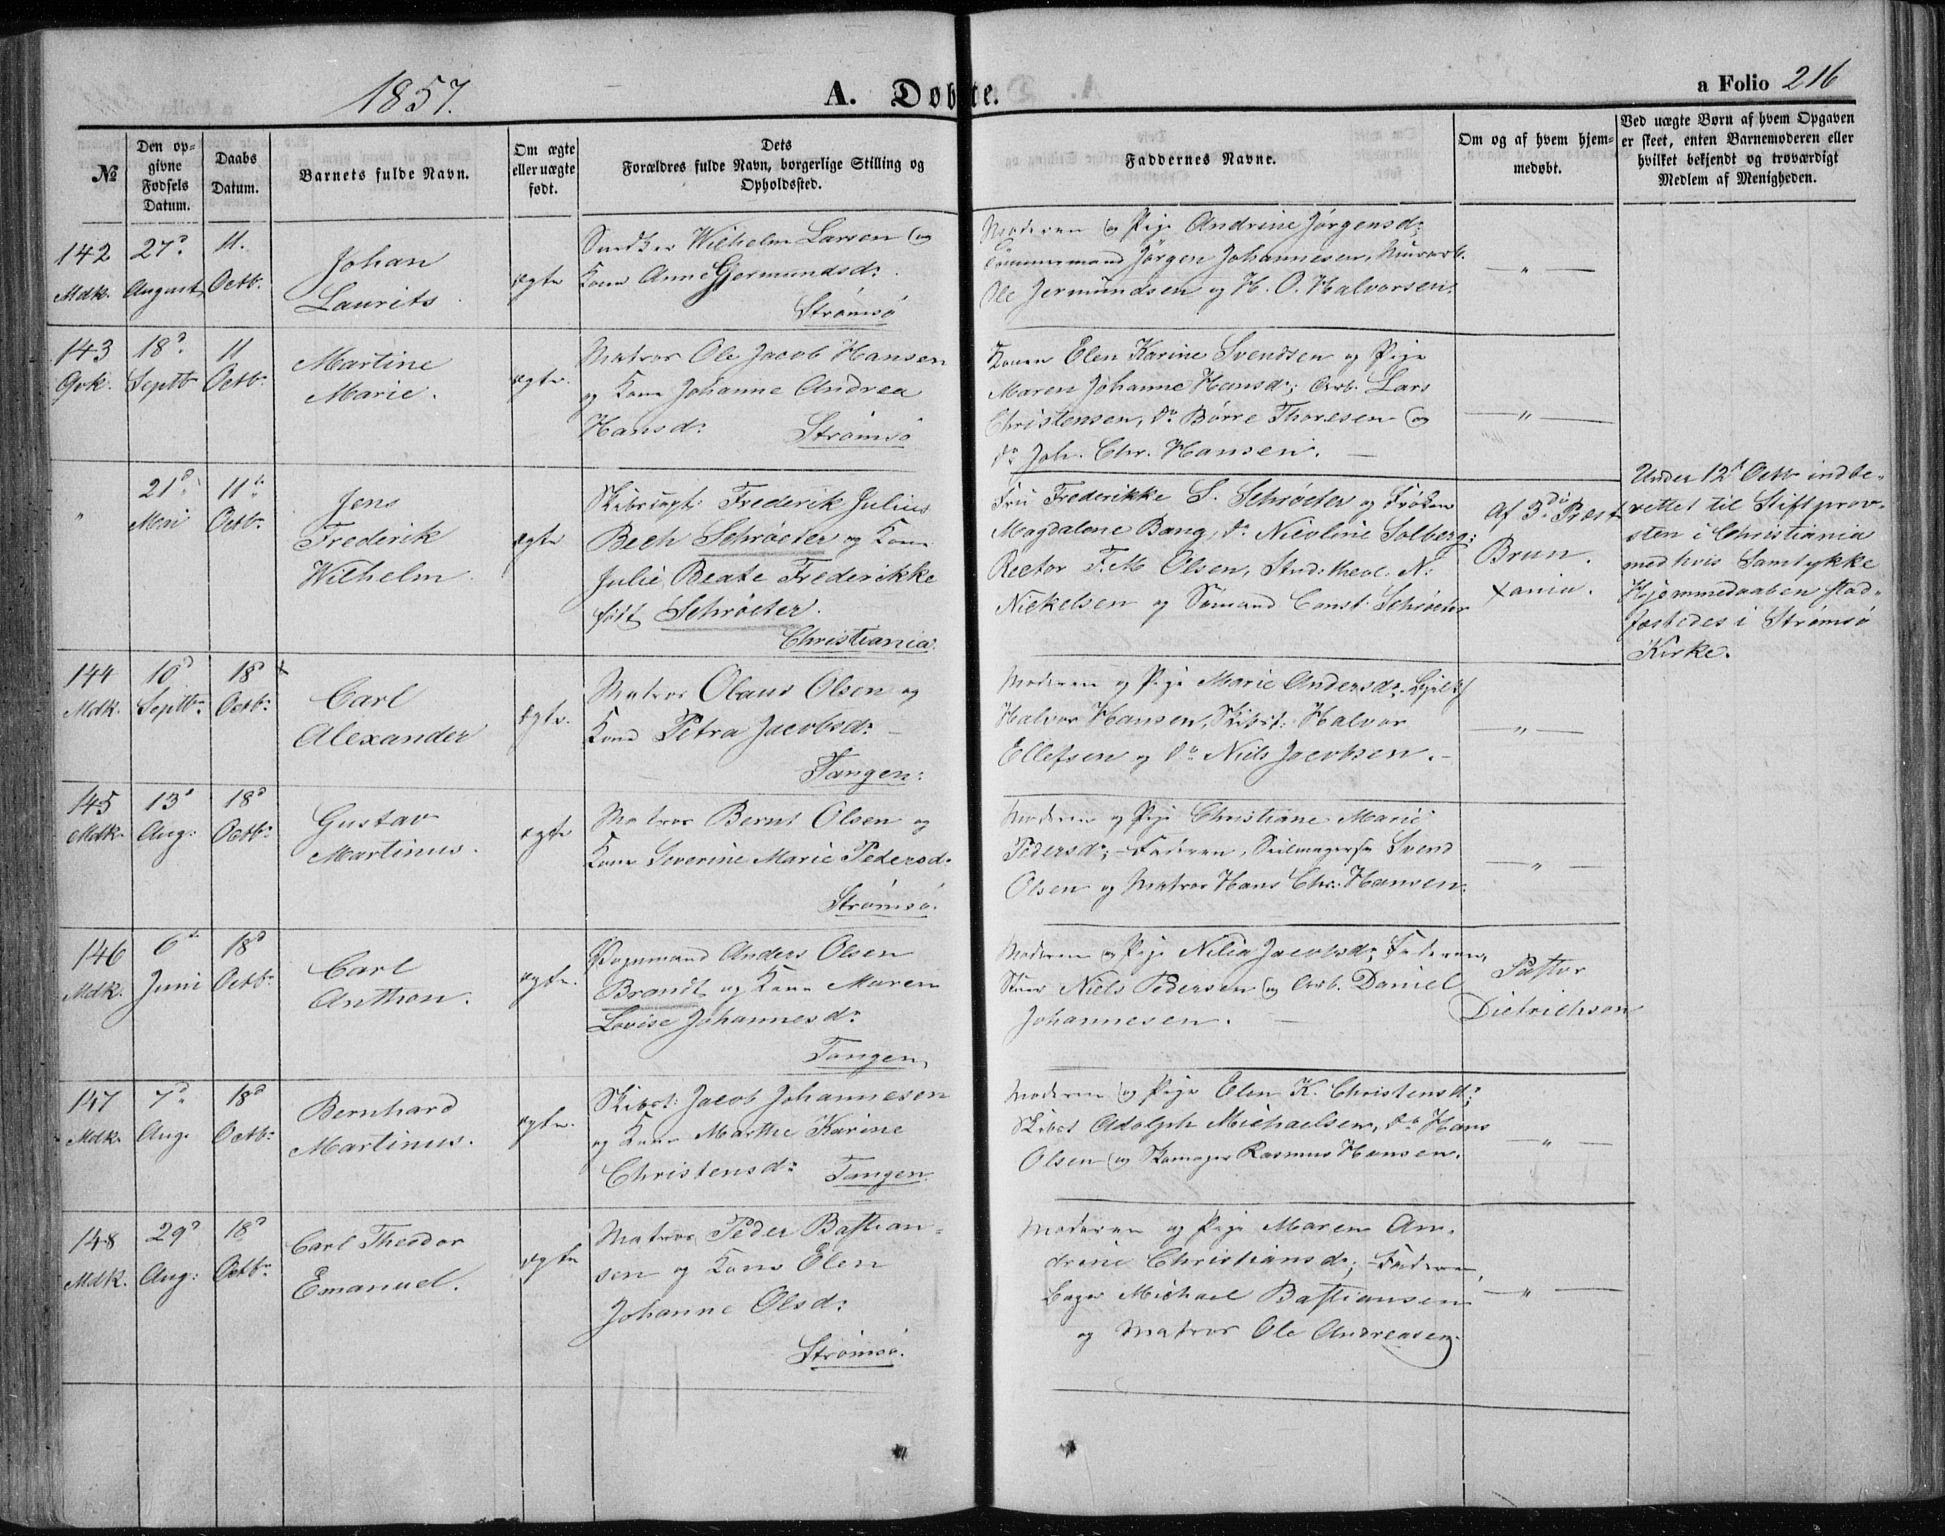 1857.
A. Døbte.
a Folio 216
№
Den opgivne Fødsels Datum.
Daabs Datum.
Barnets fulde Navn.
Om ægte eller uægte født.
Dets Forældres fulde Navn, borgerlige Stilling og Opholdssted.
Faddernes Navne.
Om og af hvem hjemmedøbt.
Ved uægte Børn af hvem Opgaven er skeet, enten Barnemoderen eller hvilket bekjendt og troværdigt Medlem af Menigheden.
142
Mdk.
27d
August
11.
Octb.
Johan
Laurits
ægte
Wilhelm Larsen og
Kone Anne Gjermundsd:
Strømsø
Moderen og Pige Andrine Jørgensd:
Tømmermand Jørgen Johannesen, Murarb.
Ole Jermundsen og H. O. Halvorsen.
— " —
143
Gvk.
18d
Septb
11
Octb.
Martine
Marie.
ægte.
Matros Ole Jacob Hansen
og Kone Johanne Andrea
Hansd: Strømsø
Konen Elen Karine Svendsen og Pige
Maren Johanne Hansd:; Arb. Lars
Christensen, do Børre Thoresen og
do Joh. Chr. Hansen. —
— " —
"
21d
Mai
11t
Octb.
Jens
Frederik
Wilhelm.
ægte
Skibscapt: Frederik Julius
Bech Schrøeter og Kone
Julie Beate Frederikke
født Schrøeter.
Christiania.
Fru Frederikke S. Schrøeter og Frøken
Magdalene Bang, do Nicoline Solberg;
Rector F. M Olsen, Stud: theol. N:
Nickelsen og Sømand Const: Schrøeter
Af Præst
Brun.
Xania.
Under 12t Octb indberettet
til Stiftsprovsten
i Christiania
med hvis Samtykke
Hjemmedaaben stadfæstedes
i Strømsø
Kirke.
144
Mdk.
10d
Septbr
18d
Octb:
Carl
Alexander
Ægte.
Matros Olaus Olsen og
Kone Petra Jacobsd: —
Tangen:
Moderen og Pige Marie Andersd:
Halvor Hansen, Skibst: Halvor
Ellefsen og do Niels Jacobsen. —
— " —
145
Mdk.
13d
Aug:
18d
Octb:
Gustav
Martinus.
ægte
Matros Bernt Olsen og
Kone Severine Marie Pedersd:
Strømsø.
Moderen og Pige Christiane Marie
Pedersd:; Faderen, Seilmagers Svend
Olsen og Matros Hans Chr: Hansen:
— " —
146
Mdk.
6d
Juni
18d
Octb:
Carl
Anthon.
ægte.
Vognmand Anders Olsen
Brandt og Kone Maren
Lovise Johannesd:
Tangen.
Moderen og Pige Nilia Jacobsd; Faderen,
Niels Pedersen og Arb. Daniel
Johannesen. —
Pastor
Dietrichson
147
Mdk.
7d
Aug.
18d
Octb:
Bernhard
Martinus.
ægte.
Skibst: Jacob Johannesen
og Kone Marthe Karine
Christensd: Tangen
Moderen og Pige Elen K. Christensd:;
Skibst Adolph Michaelsen, do Hans
Olsen og Skomager Rasmus Hansen.
— " —
148
Mdk.
29d
Aug:
18d
Octb:
Carl Theodor
Emanuel.
ægte
Matros Peder Bastiansen
og Kone Elen
Johanne Olsd:
Strømsø.
Moderen og Pige Maren Andrine
Christiansd:; Faderen,
Bager Michael Bastiansen
og Matros Ole Andreasen.
— " —